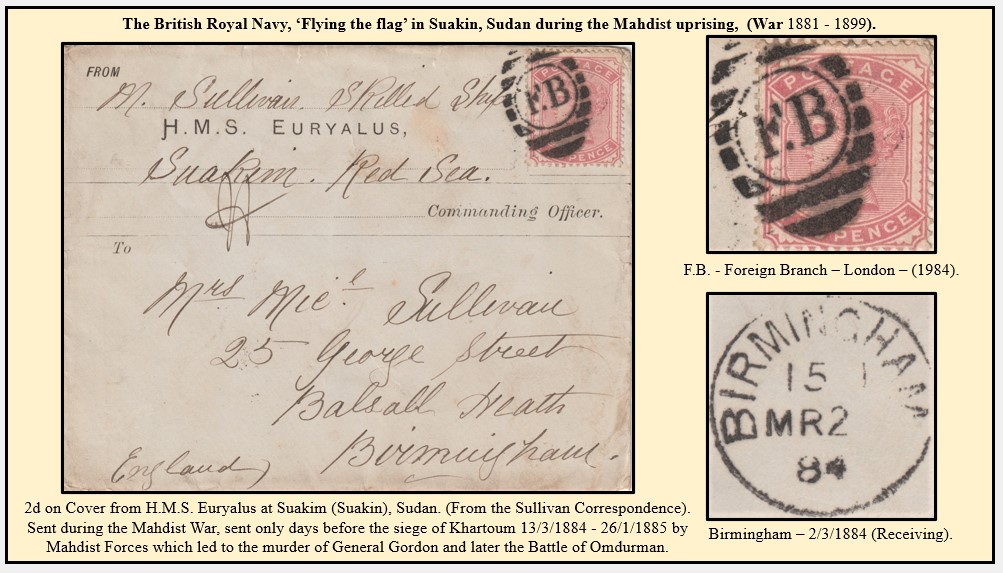 The British Royal Navy, ‘Flying the flag’ in Suakin, Sudan during the Mahdist uprising, (War 1881 - 1899).
FROM
M. Sullivan. Skilled Ship
H.M.S. EURYALUS,
Suakim. Red Sea.
Commanding Officer.
To
Mrs Micl. Sullivan
25 George Street
Balsall Heath
Birmingham.
England
F.B
PENCE
POSTAGE
F.B
PENCE
F.B. - Foreign Branch – London – (1984).
BIRMINGHAM
15 1
MR2
84
Birmingham – 2/3/1884 (Receiving).
2d on Cover from H.M.S. Euryalus at Suakim (Suakin), Sudan. (From the Sullivan Correspondence).
Sent during the Mahdist War, sent only days before the siege of Khartoum 13/3/1884 - 26/1/1885 by
Mahdist Forces which led to the murder of General Gordon and later the Battle of Omdurman.